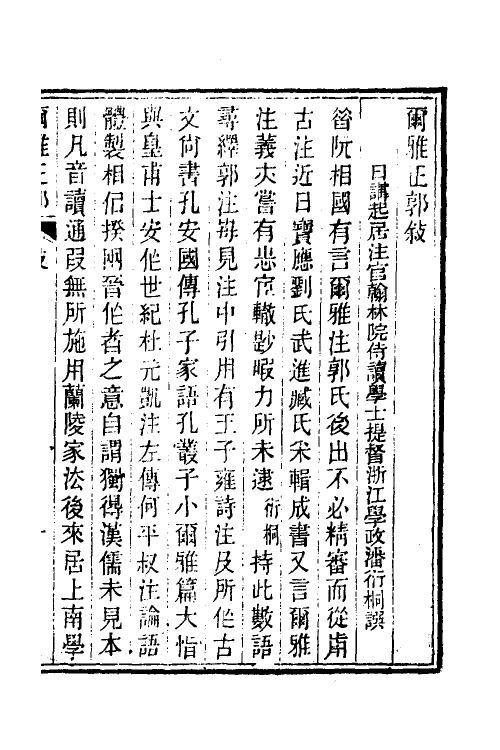 爾雅正郭敍
日講起居注官翰林院侍讀學士提督浙江學政潘衍桐譔
昝阮相國有言爾雅注郭氏後出不必精審而從歬
古注近日寶應劉氏武進臧氏采輯成書又言爾雅
注義夫嘗有志官轍尟暇力所未逮衍桐持此數語
尋繹郭注每見注中引用有王子雍詩注及所作古
文尚書孔安國傳孔子家語孔叢子小爾雅篇大恉
與皇甫士安作世紀杜元凱注左傳何平叔注論語
體製相侶揆网晉作者之意自謂獨得漢儒未見本
則凡音讀通叚無所施用蘭陵家法後來居上南學
爾雅正郭 敍 一